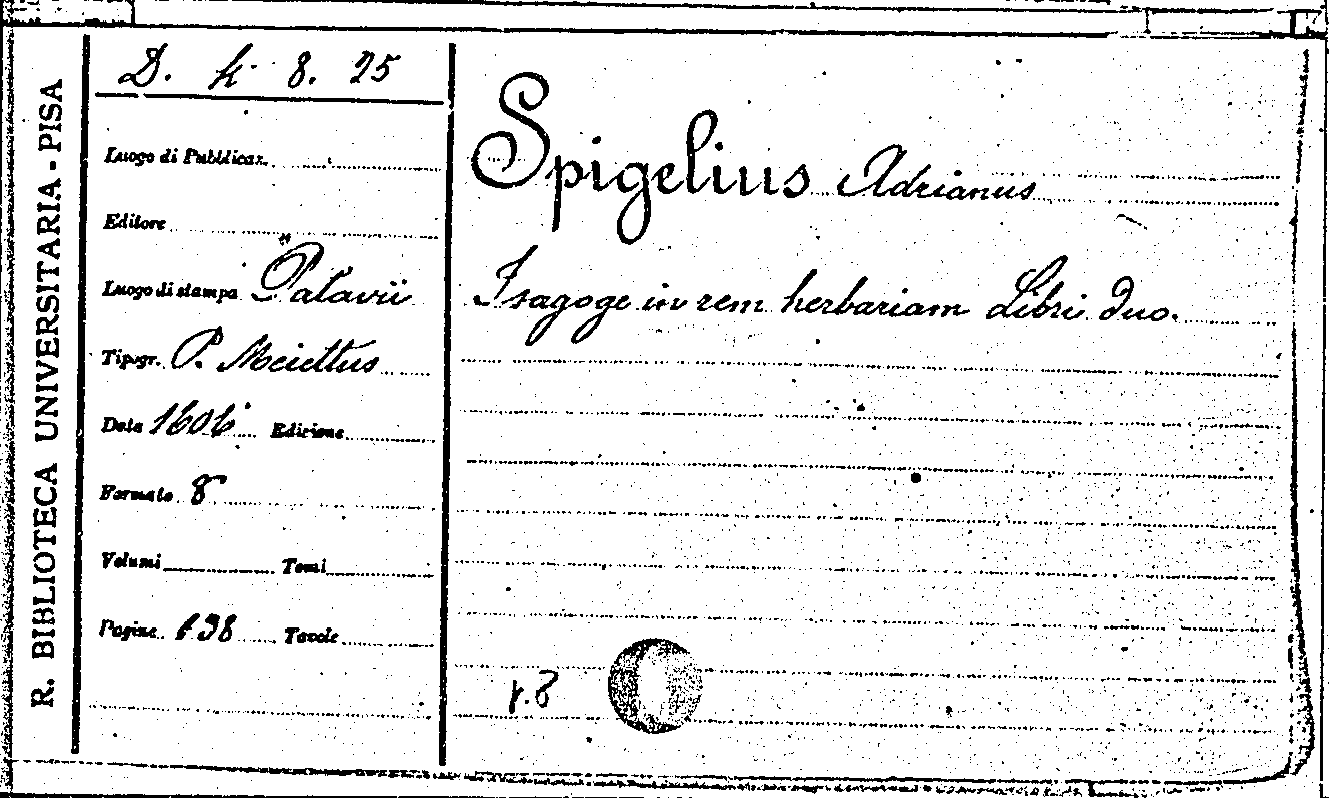 R. BIBLIOTECA UNIVERSITARIA - PISA
D. k 8. 25
Luogo di Pubblicaz.
Editore
Luogo di stampa Patavii
Tipogr. P. Meiettus
Data 1606 Edizione
Formato 8°
Volumi Tomi
Pagine 138 Tavole
Spigelius Adrianus
Isagoge in rem herbariam Libri Duo.